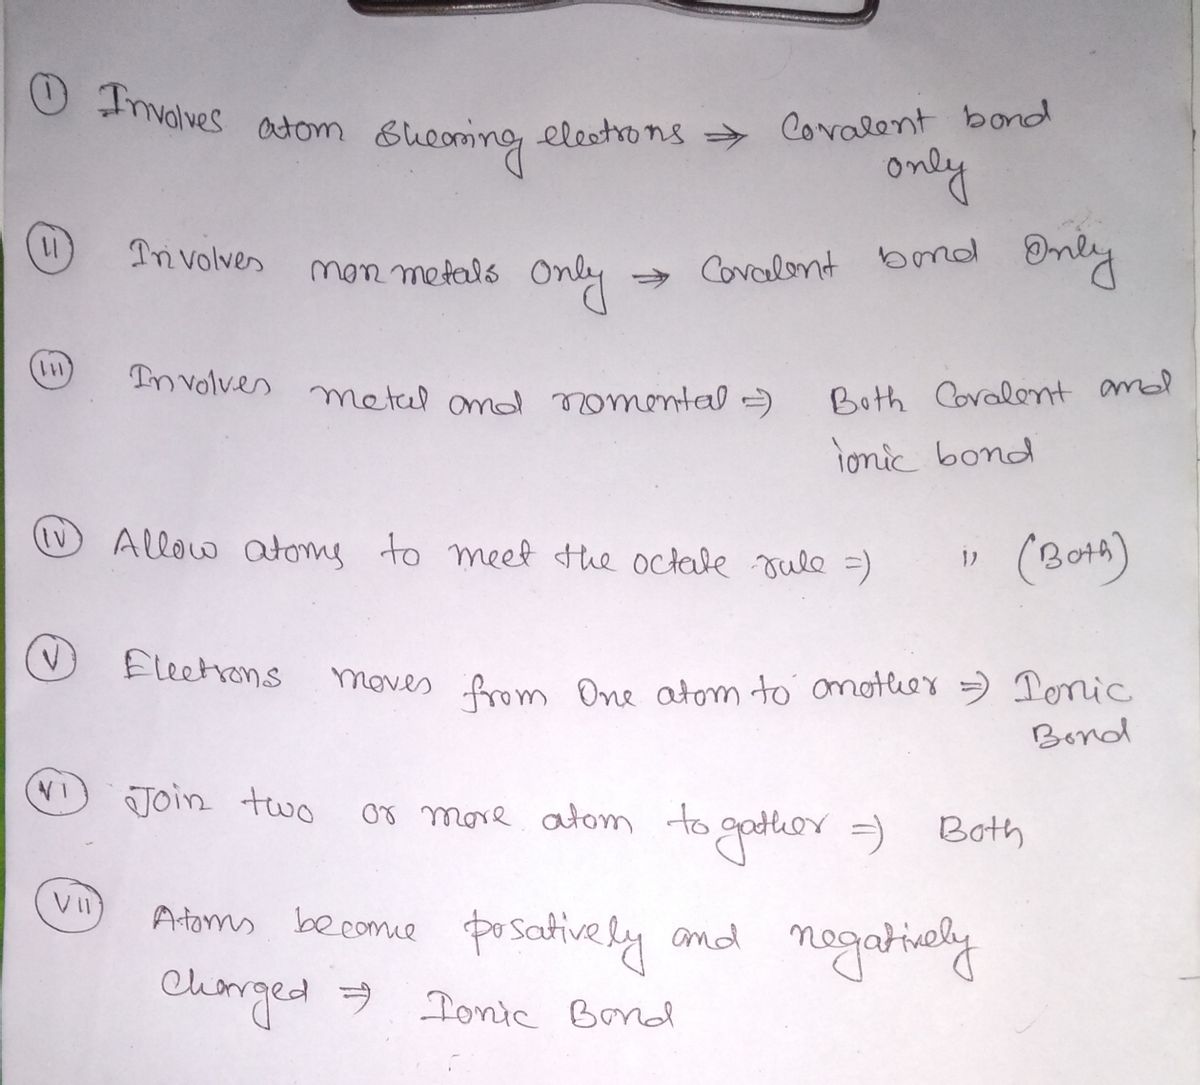 (i) Involves atom shearing electrons ⇒ Covalent bond
only
(ii) Involves non metals only ⇒ Covalent bond Only
(iii) Involves metal and nomental ⇒ Both Covalent and
ionic bond
(iv) Allow atoms to meet the octate rule ⇒ ,, (Both)
(v) Electrons moves from One atom to another ⇒ Ionic
Bond
(vi) Join two or more atom to gather ⇒ Both
(vii) Atoms become posatively and negatively
Charged ⇒ Ionic Bond